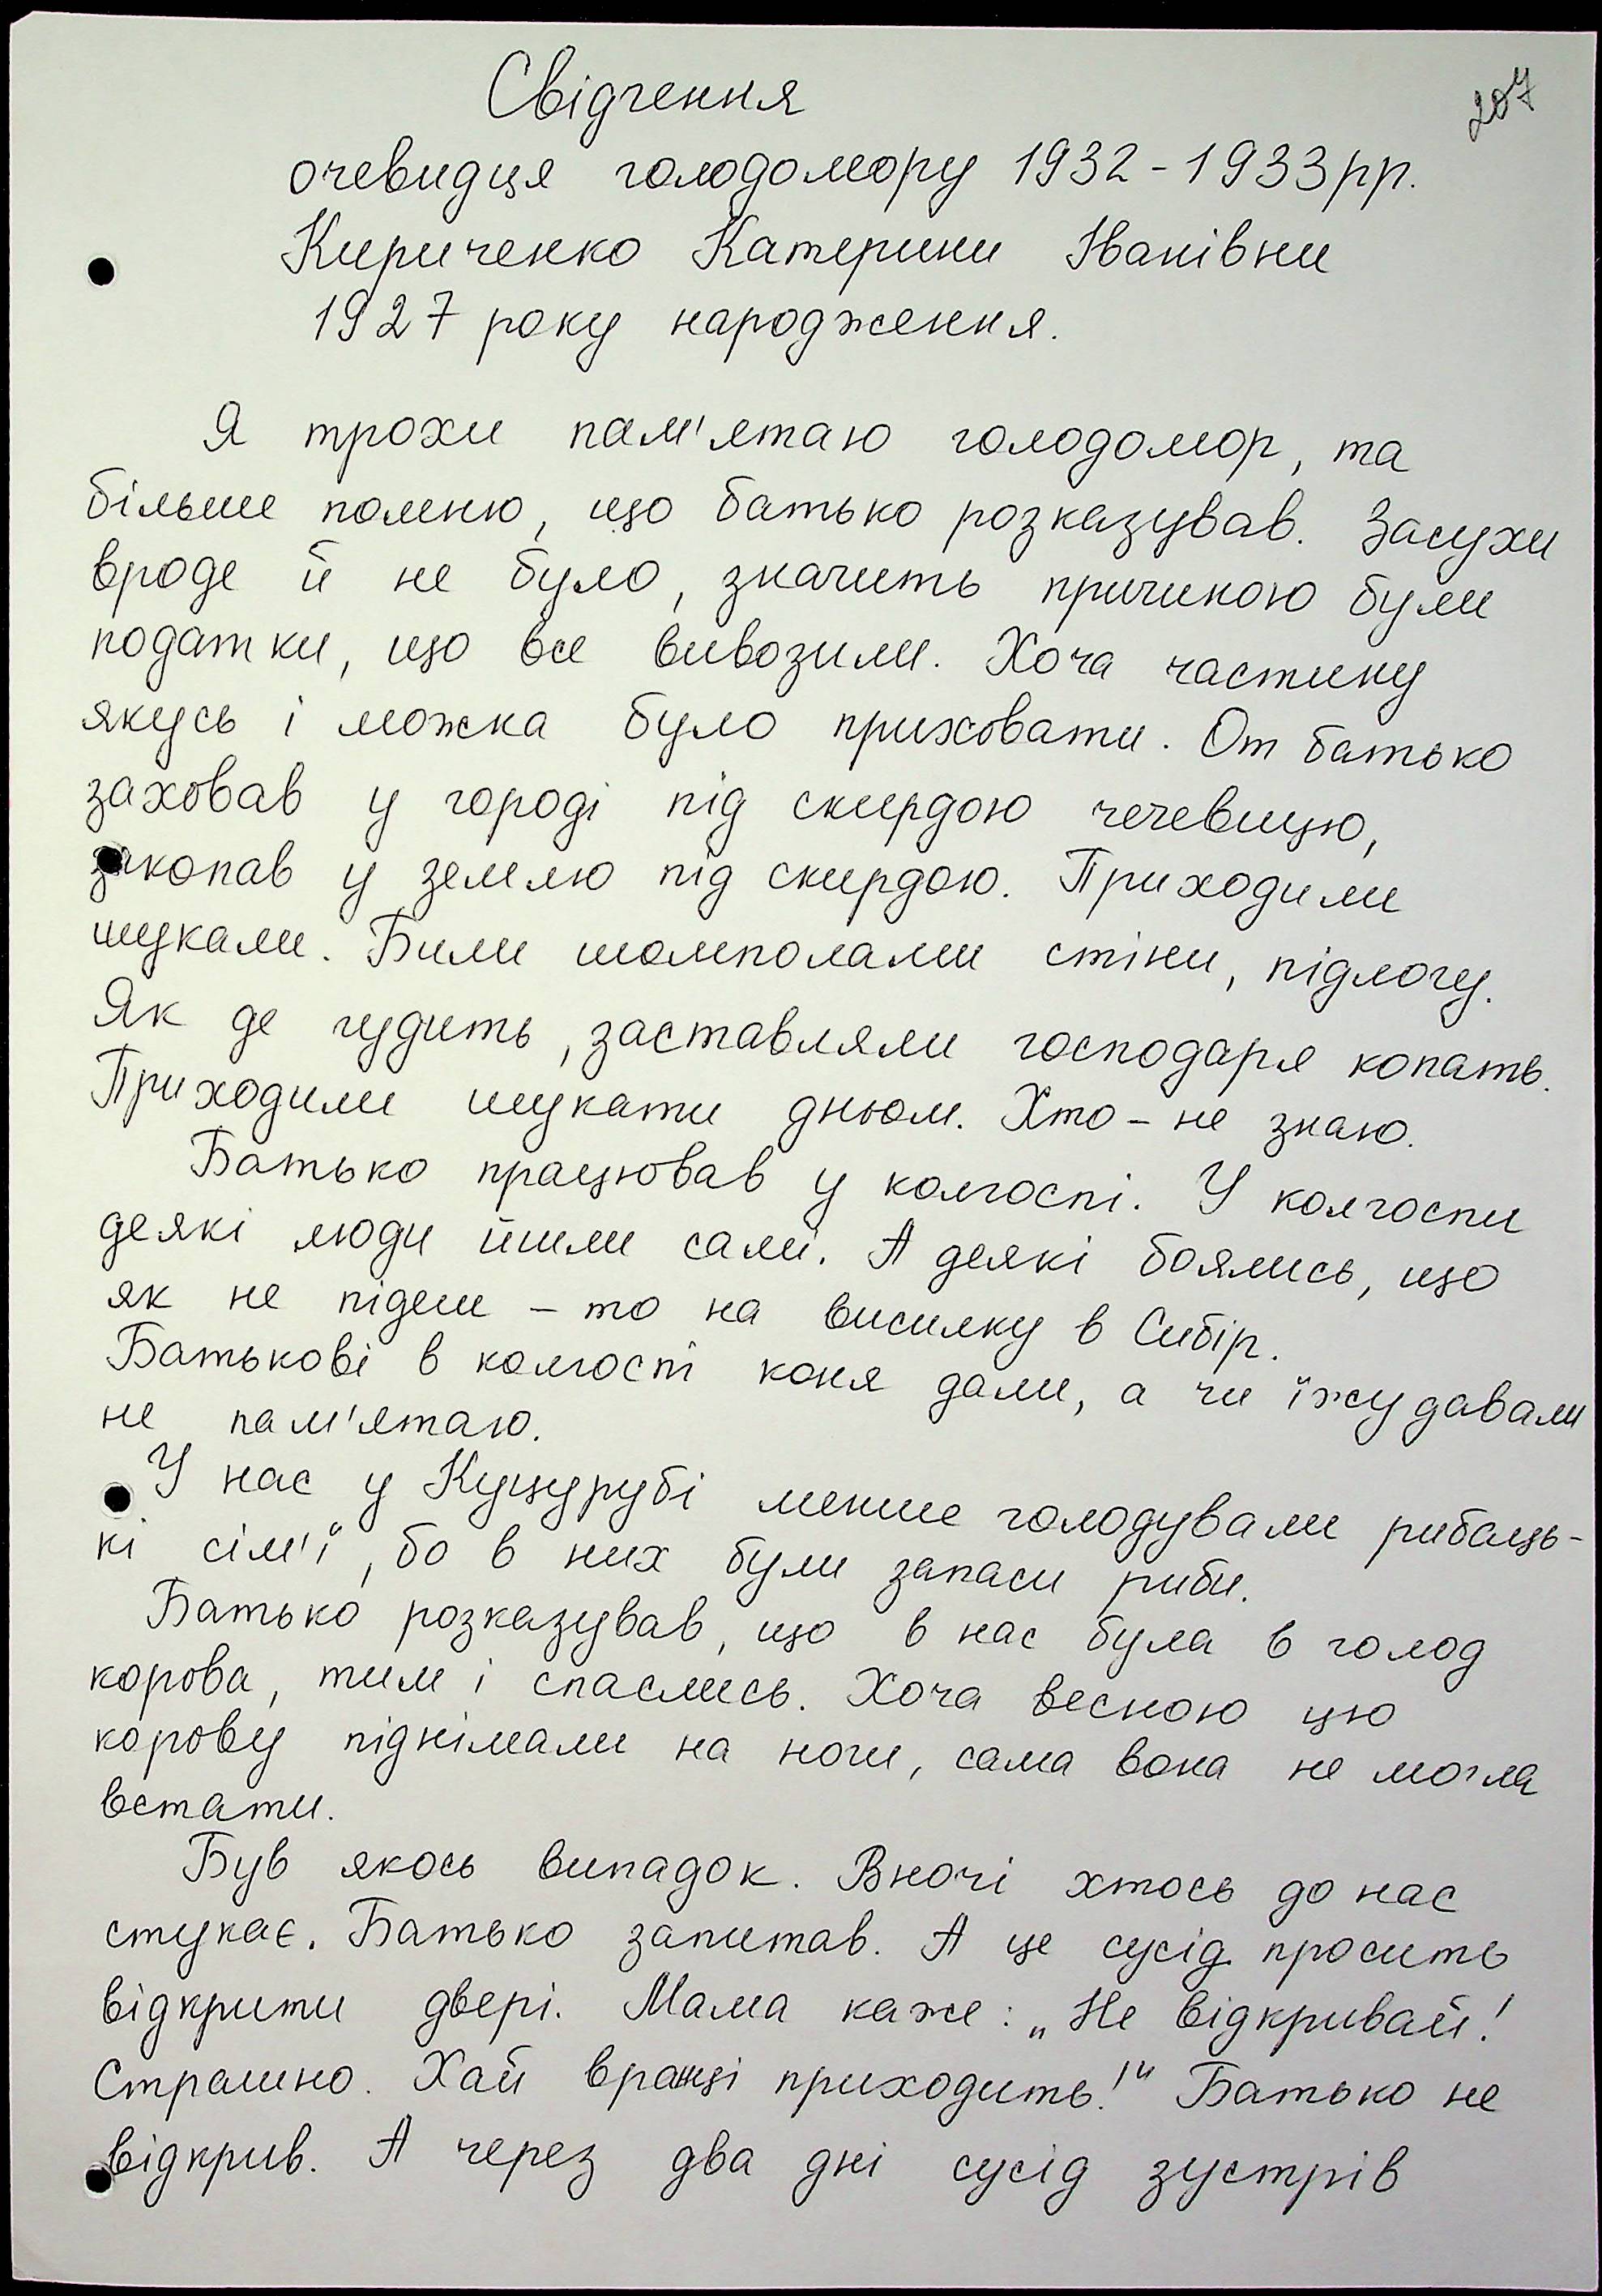 207
Свідчення
очевидця голодомору 1932-1933рр.
Кириченко Катерини Іванівни
1927 року народження.
Я трохи пам'ятаю голодомор, та
більше помню, що батько розказував. Засухи
вроде й не було, значить причиною були
податки, що все вивозили. Хоча частину
якусь і можна було приховати. От батько
заховав у городі під скирдою чечевицю,
закопав у землю під скирдою. Приходили
шукали. Били шомполами стіни, підлогу.
Як де гудить, заставляли господаря копать.
Приходили шукати дньом. Хто - не знаю.
Батько працював у колгоспі. У колгоспи
деякі люди йшли самі. А деякі боялись, що
як не підеш - то на висилку в Сибір.
Батькові в колгоспі коня дали, а чи їжу давали
не пам'ятаю.
У нас у Куцурубі менше голодували рибаць-
кі сім'ї, бо в них були запаси риби.
Батько розказував, що в нас була в голод
корова, тим і спаслись. Хоча весною цю
корову піднімали на ноги, сама вона не могла
встати.
Був якось випадок. Вночі хтось до нас
стукає. Батько запитав. А це сусід просить
відкрити двері. Мама каже: „Не відкривай!
Страшно. Хай вранці приходить!" Батько не
відкрив. А через два дні сусід зустрів